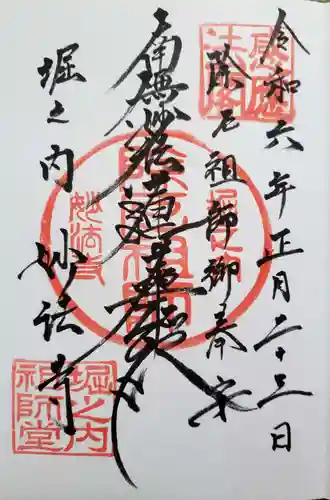 令和六年正月二十三日
除厄祖師御奉安
南無妙法蓮華経
堀之内 妙法寺
除厄祖師
堀之内
妙法寺
堀之内
祖師堂